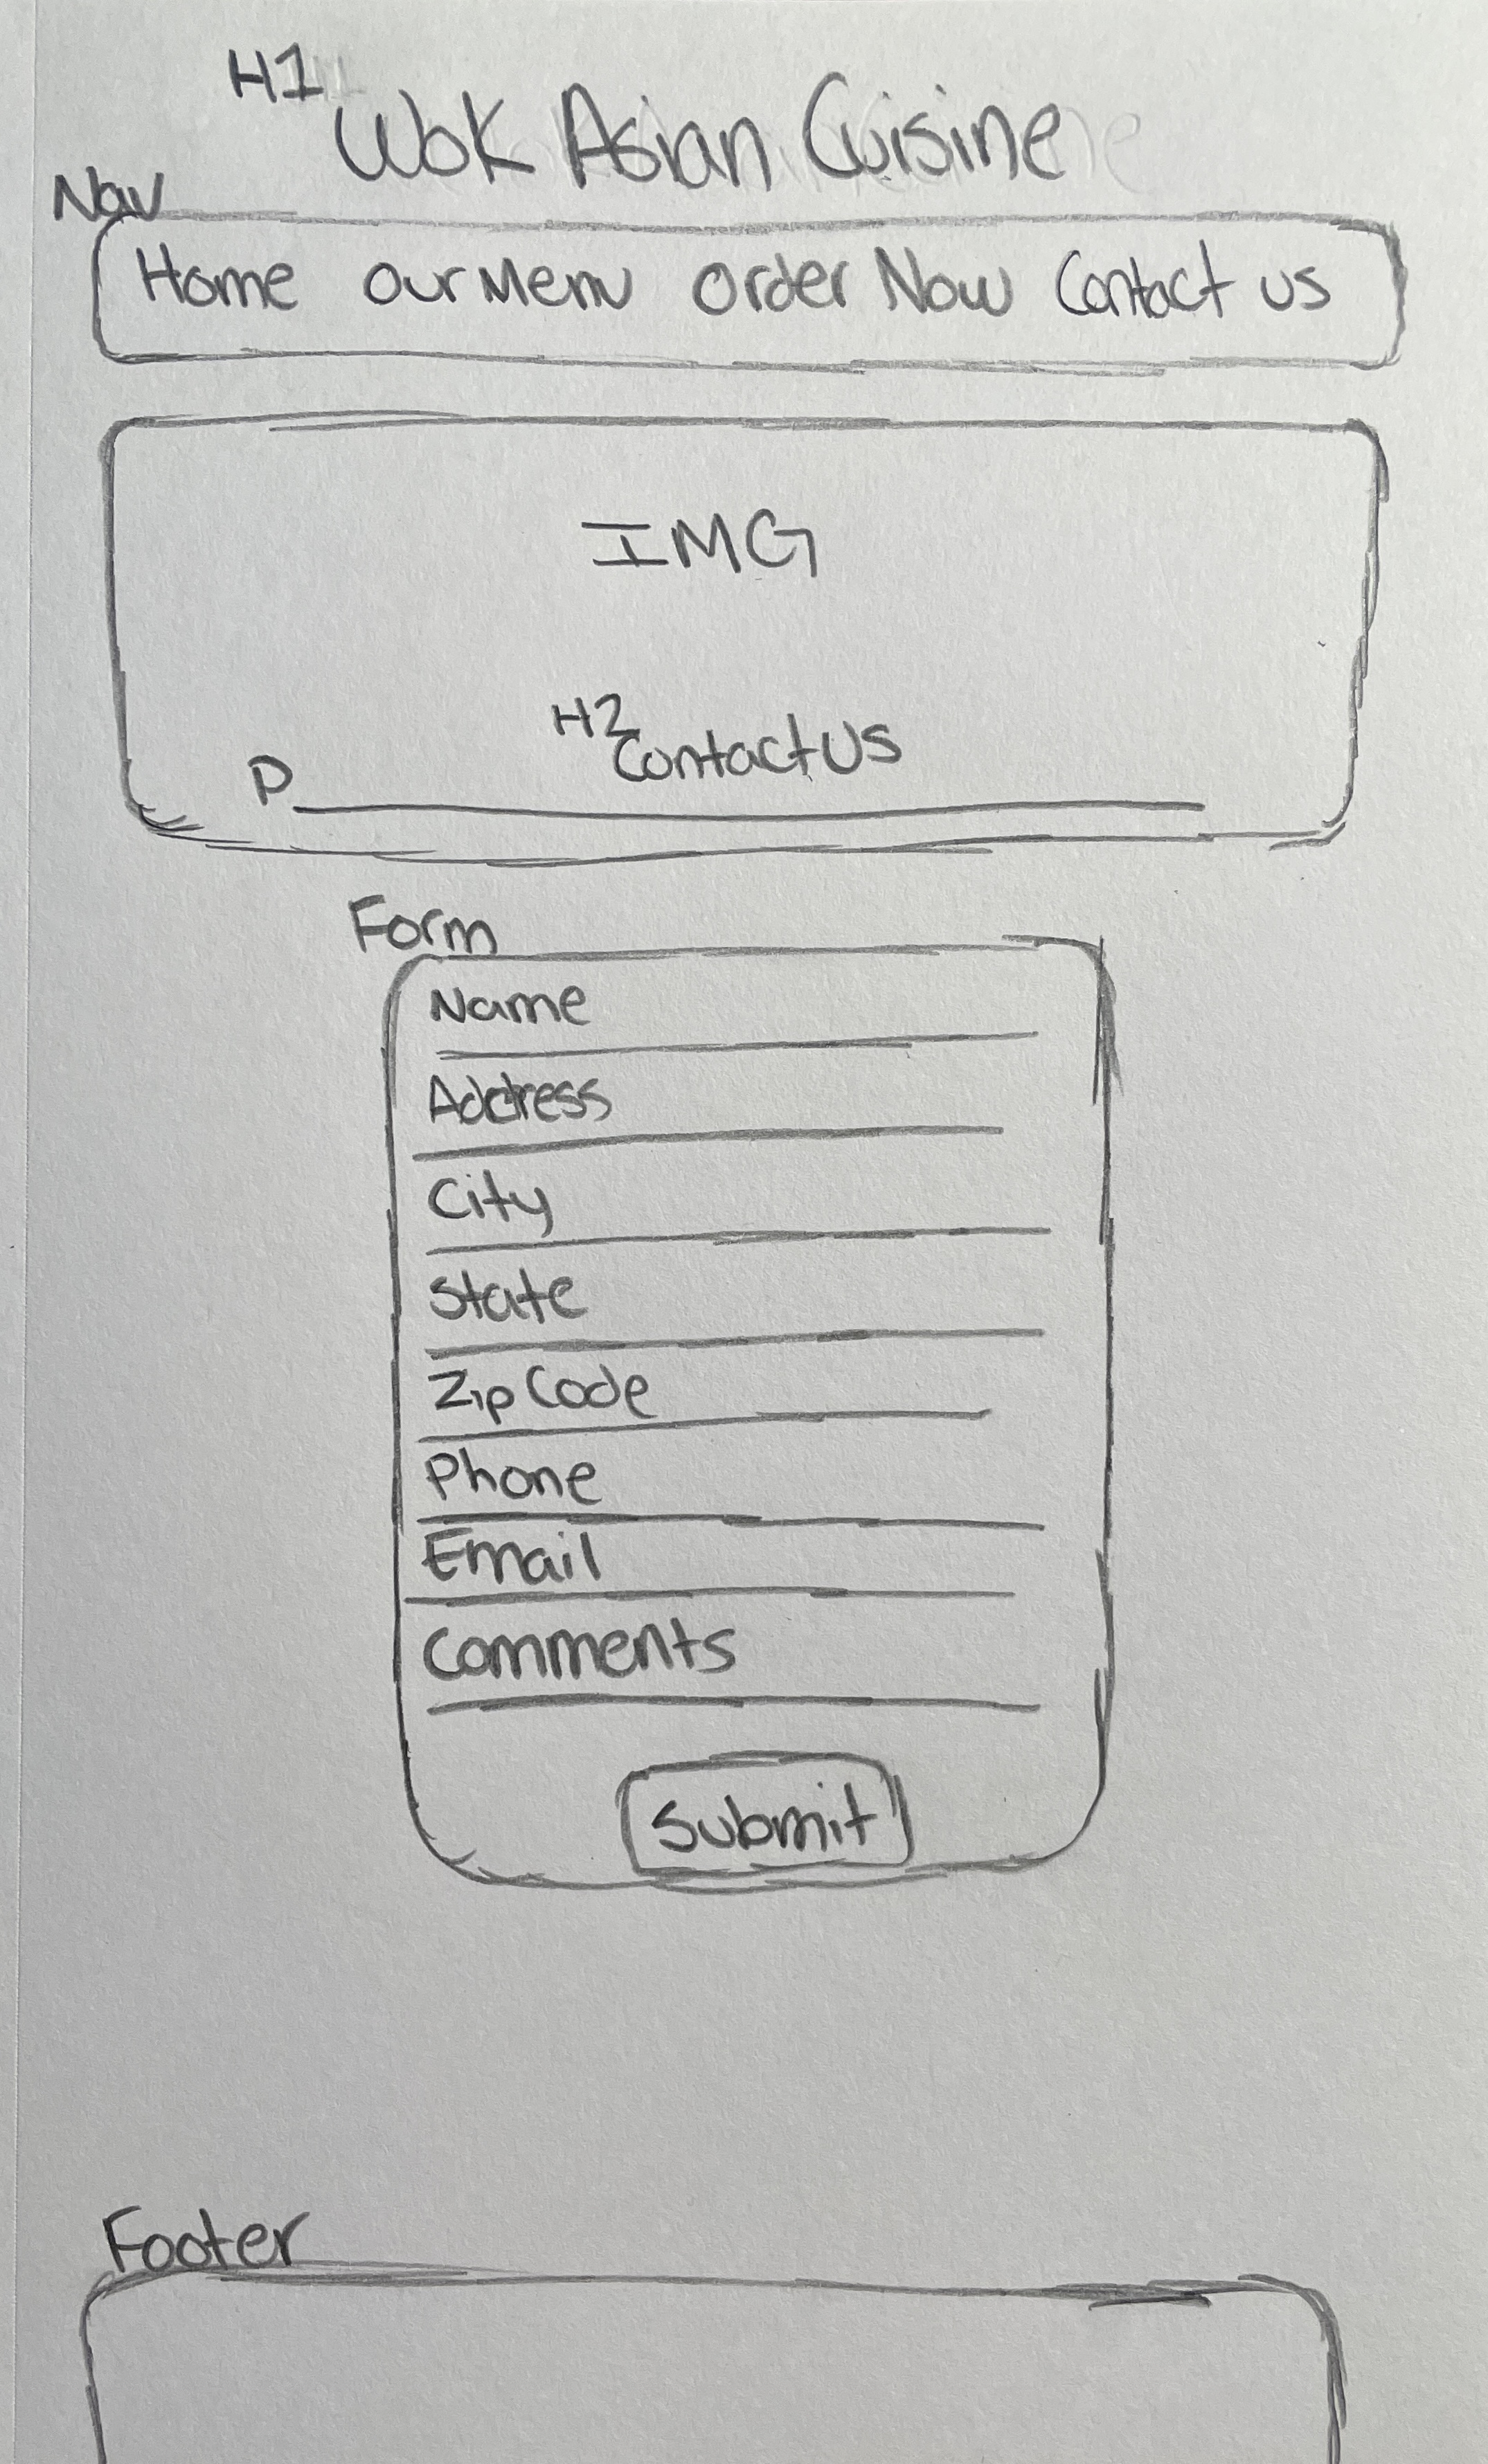 H1
Wok Asian Cuisine
Nav
Home Our Menu Order Now Contact us
IMG
H2
Contact Us
P
Form
Name
Address
City
State
Zip Code
Phone
Email
Comments
Submit
Footer